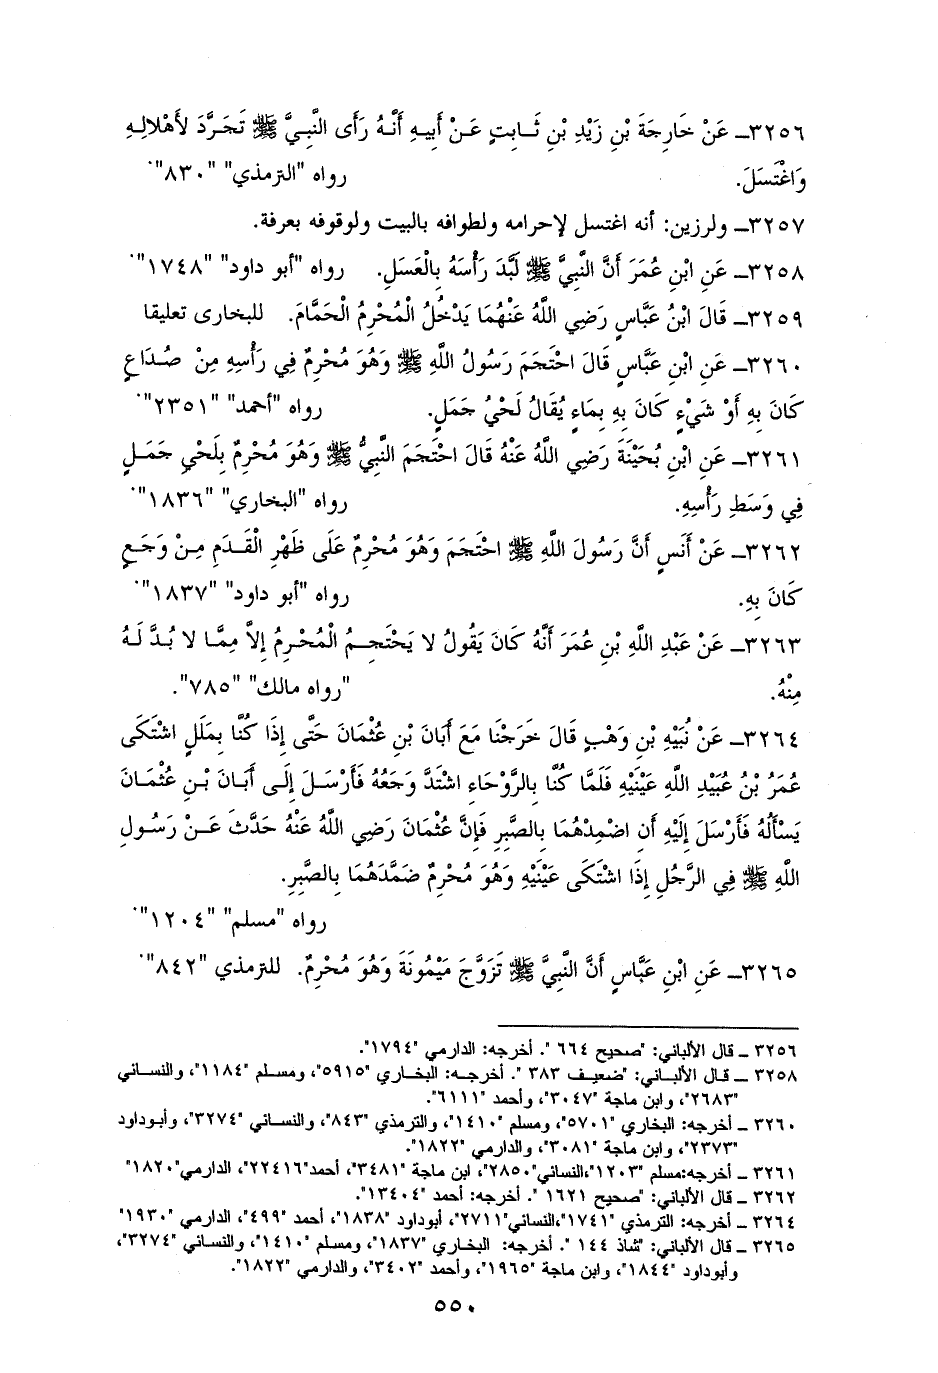 ٣٢٥٦ـ عَنْ خَارِجَةَ بْنِ زَيْدِ بْنِ ثَـابِتٍ عَـنْ أَبِيهِ أَنَّـهُ رَأَى النَّبِيَّ ﷺ تَجَرَّدَ لأَهْلالِهِ
وَاغْتَسَلَ. رواه "الترمذي" "٨٣٠".
٣٢٥٧ـ ولرزين: أنه اغتسل لإحرامه ولطوافه بالبيت ولوقوفه بعرفة.
٣٢٥٨ـ عَنِ ابْنِ عُمَرَ أَنَّ النَّبِيَّ ﷺ لَبَّدَ رَأْسَهُ بِالْعَسَلِ. رواه "أبو داود" "١٧٤٨".
٣٢٥٩ـ قَالَ ابْنُ عَبَّاسٍ رَضِي اللَّهُ عَنْهُمَا يَدْخُلُ الْمُحْرِمُ الْحَمَّامَ. للبخارى تعليقا
٣٢٦٠ـ عَنِ ابْنِ عَبَّاسٍ قَالَ احْتَجَمَ رَسُولُ اللَّهِ ﷺ وَهُوَ مُحْرِمٌ فِي رَأْسِهِ مِنْ صُـدَاعٍ
كَانَ بِهِ أَوْ شَيْءٍ كَانَ بِهِ بِمَاءٍ يُقَالُ لَحْيُ جَمَلٍ. رواه "أحمد" "٢٣٥١".
٣٢٦١ـ عَنِ ابْنِ بُحَيْنَةَ رَضِي اللَّهُ عَنْهُ قَالَ احْتَجَمَ النَّبِيُّ ﷺ وَهُوَ مُحْرِمٌ بِلَحْيِ جَمَـلٍ
فِي وَسَطِ رَأْسِهِ. رواه "البخاري" "١٨٣٦".
٣٢٦٢ـ عَنْ أَنَسٍ أَنَّ رَسُولَ اللَّهِ ﷺ احْتَجَمَ وَهُوَ مُحْرِمٌ عَلَى ظَهْرِ الْقَـدَمِ مِـنْ وَجَـعٍ
كَانَ بِهِ. رواه "أبو داود" "١٨٣٧".
٣٢٦٣ـ عَنْ عَبْدِ اللَّهِ بْنِ عُمَرَ أَنَّهُ كَانَ يَقُولُ لا يَحْتَجِـمُ الْمُحْرِمُ إِلاَّ مِمَّـا لا بُـدَّ لَـهُ
مِنْهُ. "رواه مالك" "٧٨٥".
٣٢٦٤ـ عَنْ نُبَيْهِ بْنِ وَهْبٍ قَالَ خَرَجْنَا مَعَ أَبَانَ بْنِ عُثْمَانَ حَتَّى إِذَا كُنَّا بِمَلَلٍ اشْتَكَى
عُمَرُ بْنُ عُبَيْدِ اللَّهِ عَيْنَيْهِ فَلَمَّا كُنَّا بِالرَّوْحَاءِ اشْتَدَّ وَجَعُهُ فَأَرْسَلَ إِلَى أَبَانَ بْـنِ عُثْمَـانَ
يَسْأَلُهُ فَأَرْسَلَ إِلَيْهِ أَنِ اضْمِدْهُمَا بِالصَّبِرِ فَإِنَّ عُثْمَانَ رَضِي اللَّهُ عَنْهُ حَدَّثَ عَـنْ رَسُـولِ
اللَّهِ ﷺ فِي الرَّجُلِ إِذَا اشْتَكَى عَيْنَيْهِ وَهُوَ مُحْرِمٌ ضَمَّدَهُمَا بِالصَّبِرِ.
رواه "مسلم" "١٢٠٤".
٣٢٦٥ـ عَنِ ابْنِ عَبَّاسٍ أَنَّ النَّبِيَّ ﷺ تَزَوَّجَ مَيْمُونَةَ وَهُوَ مُحْرِمٌ. للترمذي "٨٤٢".
٣٢٥٦ ـ قال الألباني: "صحيح ٦٦٤ ". أخرجه: الدارمي "١٧٩٤".
٣٢٥٨ ـ قـال الألبـاني: "ضعيـف ٣٨٣ ". أخرجـه: البخاري "٥٩١٥"، ومسلم "١١٨٤"، والنسائي
"٢٦٨٣"، وابن ماجة "٣٠٤٧"، وأحمد "٦١١١".
٣٢٦٠ ـ أخرجه: البخاري "٥٧٠١"، ومسلم "١٤١٠"، والترمذي "٨٤٣"، والنسـائي "٣٢٧٤"، وأبـوداود
"٢٣٧٣"، وابن ماجة "٣٠٨١"، والدارمي "١٨٢٢".
٣٢٦١ ـ أخرجه:مسلم "١٢٠٣"،النسائي"٢٨٥٠"، ابن ماجة "٣٤٨١"، أحمد"٢٢٤١٦"، الدارمي"١٨٢٠"
٣٢٦٢ ـ قال الألباني: "صحيح ١٦٢١ ". أخرجه: أحمد "١٣٤٠٤".
٣٢٦٤ ـ أخرجه: الترمذي "١٧٤١"،النسائي"٢٧١١"، أبوداود "١٨٣٨"، أحمد "٤٩٩"، الدارمي "١٩٣٠"
٣٢٦٥ ـ قال الألباني: "شاذ ١٤٤ ". أخرجه: البخاري "١٨٣٧"، ومسلم "١٤١٠"، والنسائي "٣٢٧٤"،
وأبوداود "١٨٤٤"، وابن ماجة "١٩٦٥"، وأحمد "٣٤٠٢"، والدارمي "١٨٢٢".
٥٥٠